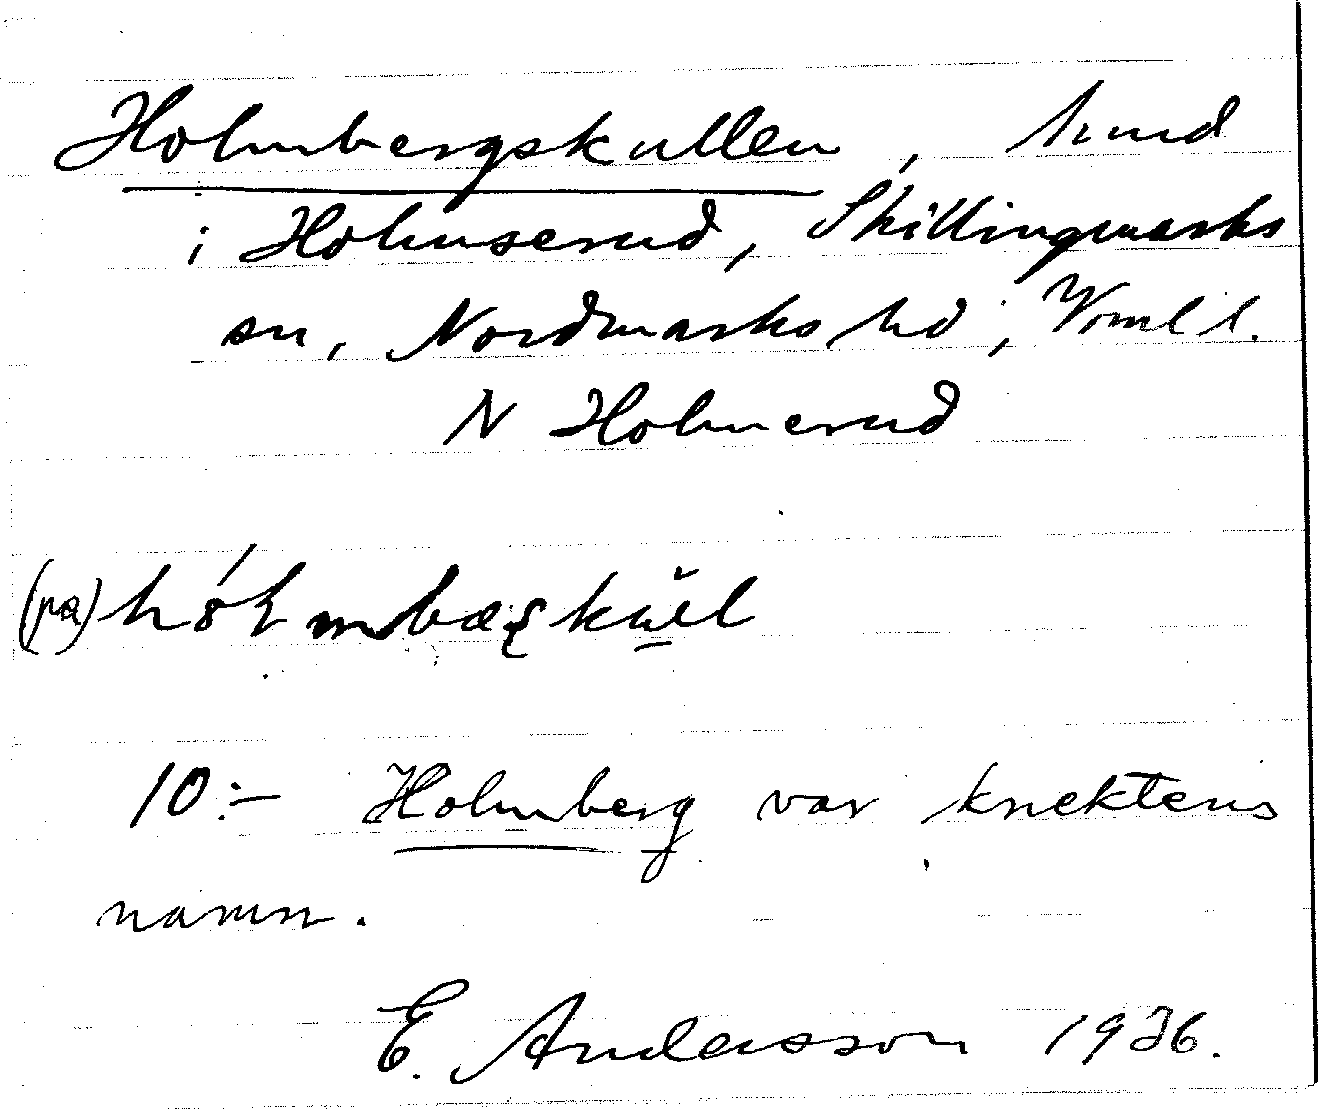 Holmbergskullen, hmd
i Holmserud, Skillingmarks
sn, Nordmarks hd, Vrml l.
N Holmerud
(på)
10:- Holmberg var knektens
namn.
E. Andersson 1936.